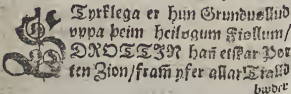 STyrklega er hun Grundvøllud
vppa þeim heilogum Fiøllum/
DROTTIN hañ elskar Por
ten Zion/ fram yfer allar Tialld
bwder